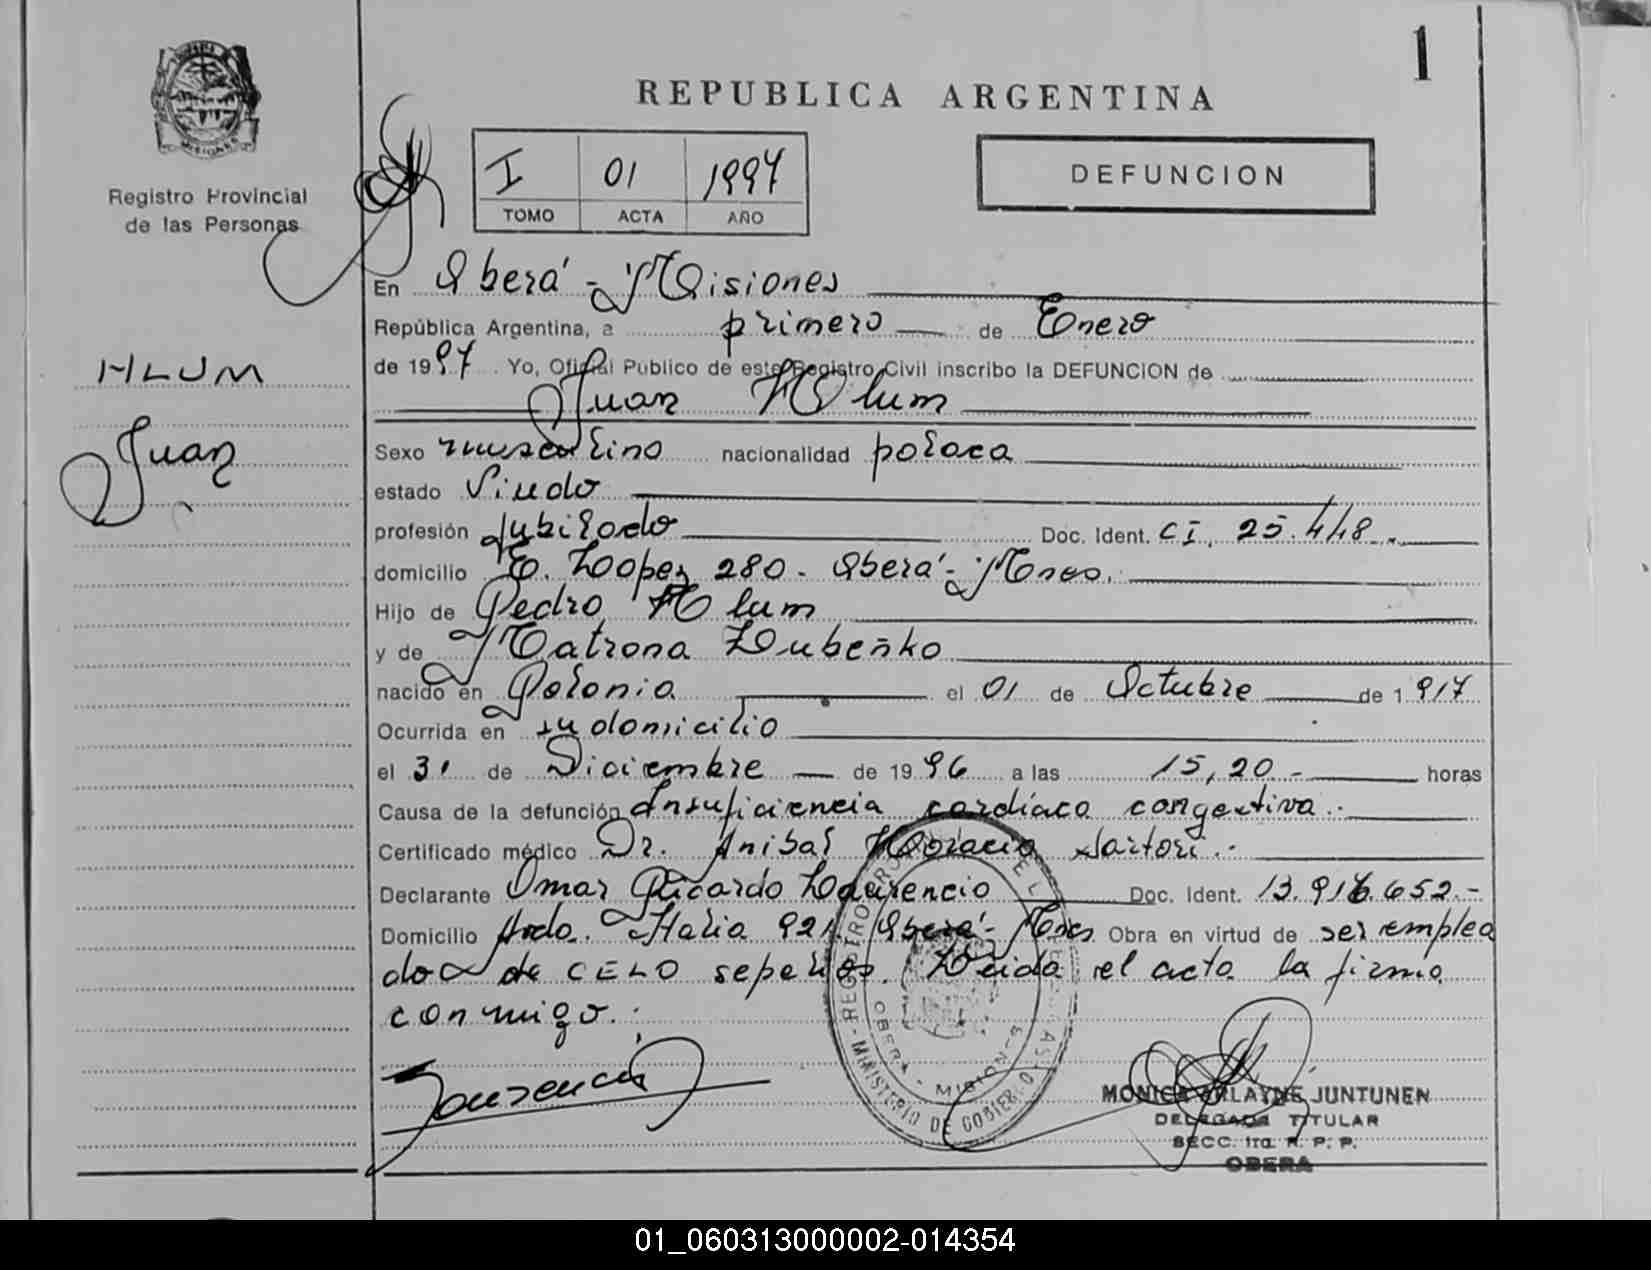 1
REPUBLICA ARGENTINA
MISIONES
Registro Provincial
de las Personas
I 01 1997
TOMO ACTA AÑO
DEFUNCION
En Oberá - Misiones
República Argentina, a primero de Enero
de 1997. Yo, Oficial Público de este Registro Civil inscribo la DEFUNCION de
Juan Hlum
HLUM
Juan
Sexo masculino nacionalidad polaca
estado Viudo
profesión Jubilado Doc. Ident. CI. 25.448.-
domicilio E. Lopez 280 - Oberá - Mnes.
Hijo de Pedro Hlum
y de Matrona Dubeñko
nacido en Polonia el 01 de Octubre de 1917
Ocurrida en su domicilio
el 31 de Diciembre de 1996 a las 15,20.- horas
Causa de la defunción Insuficiencia cardíaca congestiva.-
Certificado médico Dr. Anibal Horacio Sartori.-
Declarante Omar Ricardo Laurencio Doc. Ident. 13.916.652.-
Domicilio Avda. Italia 921 Oberá - Mnes. Obra en virtud de ser emplea
do de CELO sepelios. Leida el acta la firma
conmigo.:
REGISTRO PROVINCIAL DE LAS PERSONAS
OBERA - MISIONES
MINISTERIO DE GOBIERNO
Laurencio
MONICA ARLAYNE JUNTUNEN
DELEGADA TITULAR
SECC. 1ra. R. P. P.
OBERA
01_060313000002-014354